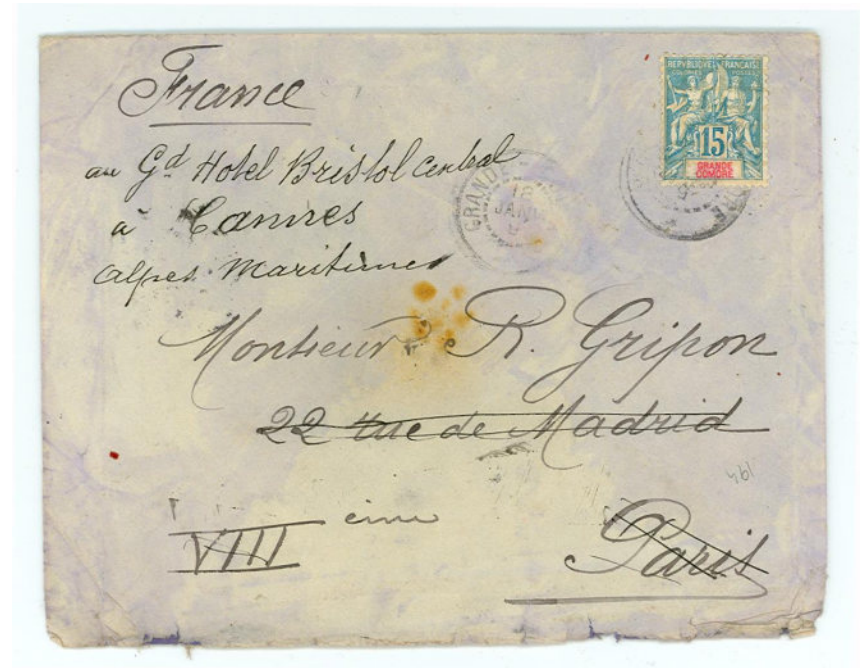 France
au Gd Hotel Bristol Central
à Cannes
Alpes Maritimes
Monsieur R. Gripon
22 rue de Madrid
VIII eme
Paris
REPUBLIQUE FRANÇAISE
COLONIES POSTES
15
GRANDE
COMORE
GRANDE
16
JANV
194